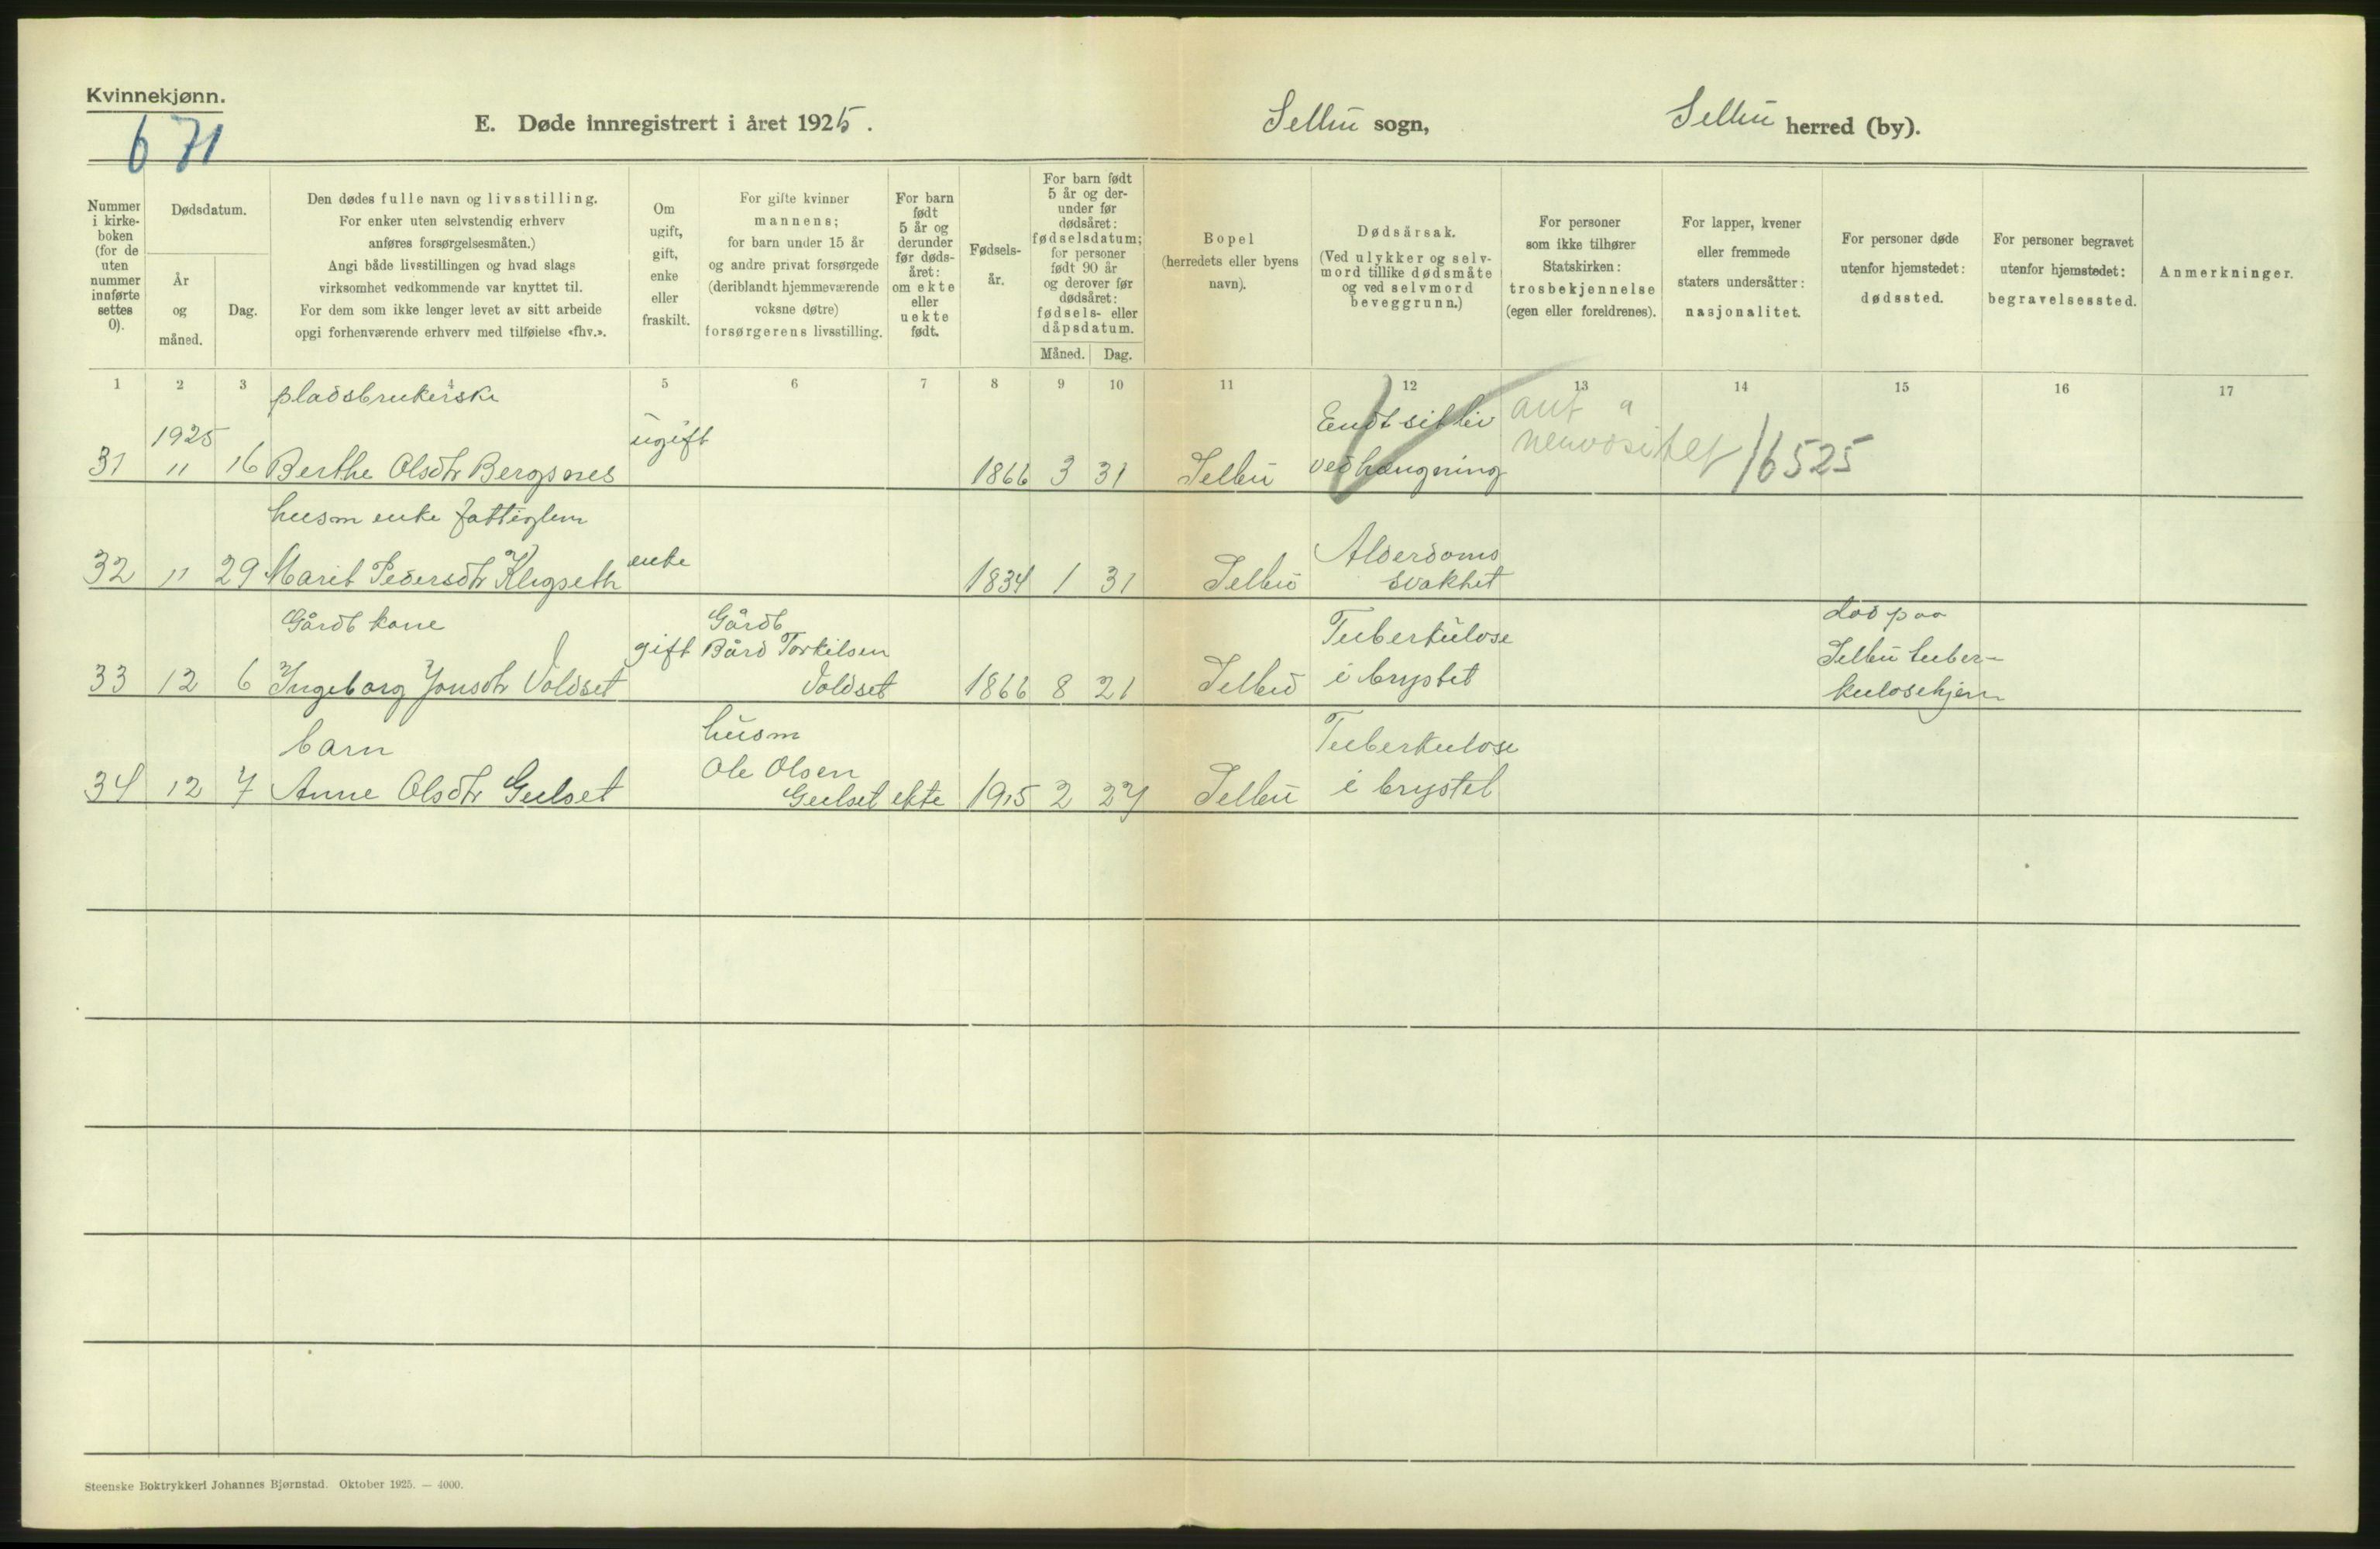 Kvinnekjønn.
671
E. Døde innregistrert i året 1925.
Selbu sogn,
Selbu herred (by).
Nummer i kirkeboken (for de uten nummer innførte settes 0).
Dødsdatum.
År og måned.
Dag.
Den dødes fulle navn og livsstilling.
For enker uten selvstendig erhverv
anføres forsørgelsesmåten.)
Angi både livsstillingen og hvad slags
virksomhet vedkommende var knyttet til.
For dem som ikke lenger levet av sitt arbeide
opgi forhenværende erhverv med tilføielse «fhv.».
Om
ugift,
gift,
enke
eller
fraskilt.
For gifte kvinner
mannens;
for barn under 15 år
og andre privat forsørgede
(deriblandt hjemmeværende
voksne døtre)
forsørgerens livsstilling.
For barn
født
5 år og
derunder
før døds-
året:
om ekte
eller
uekte
født.
Fødsels-
år.
For barn født
5 år og der-
under før
dødsåret:
fødselsdatum;
for personer
født 90 år
og derover før
dødsåret:
fødsels- eller
dåpsdatum.
Måned. Dag.
Bopel
(herredets eller byens
navn).
Dødsårsak.
(Ved ulykker og selv-
mord tillike dødsmåte
og ved selvmord
beveggrunn.)
For personer
som ikke tilhører
Statskirken:
trosbekjennelse
(egen eller foreldrenes).
For lapper, kvener
eller fremmede
staters undersåtter:
nasjonalitet.
For personer døde
utenfor hjemstedet:
dødssted.
For personer begravet
utenfor hjemstedet:
begravelsessted.
Anmerkninger.
1 2 3 4 5 6 7 8 9 10 11 12 13 14 15 16 17
pladsbrukerske
1925 ugift Endt sit liv
31 11 16 Berthe Olsdtr Bergsnes 1866 3 31 Selbu ved hængning nervøsitet /6525
husm enke fattiglem
enke Alderdoms
32 11 29 Marit Pedersdtr Kligseth 1834 1 31 Selbu svakhet
Gårdb kone Gårdb Tuberkulose død paa
gift Bård Torkilsen Selbu tuber-
33 12 6 Ingeborg Jonsdtr Voldset Voldset 1866 8 21 Selbu i brystet kulosehjem
barn husm Tuberkulose
Ole Olsen
34 12 7 Anne Olsdtr Gulset Gulset ekte 1915 2 27 Selbu i brystet
Steenske Boktrykkeri Johannes Bjørnstad. Oktober 1925. — 4000.